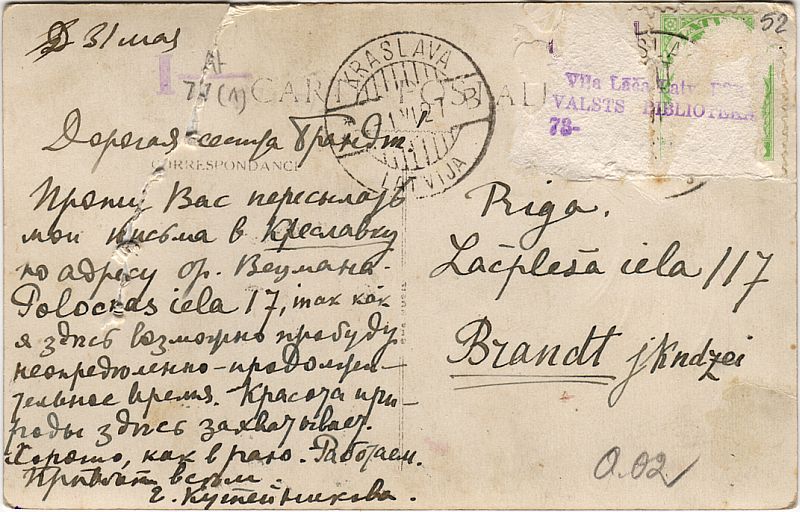 31 мая
AF
77(1)
52
KRASLAVA
LATVIJA
VALSTS BIBLIOTEKA
73-
CORRESPONDANCE
Дорогая сестра Брандт.
Прошу Вас пересылать
мои письма в Креславку
по адресу гр. Веумана
Polockas iela 17, так как
я здесь возможно пробуду
неопределенно-продолжи-
тельное время. Красота при-
роды здесь захватывает.
Хорошо, как в раю. Работаем.
Привет всем
Е. Кутейникова.
Riga.
Lāčplēša iela 117
Brandt jkndzei
0.02